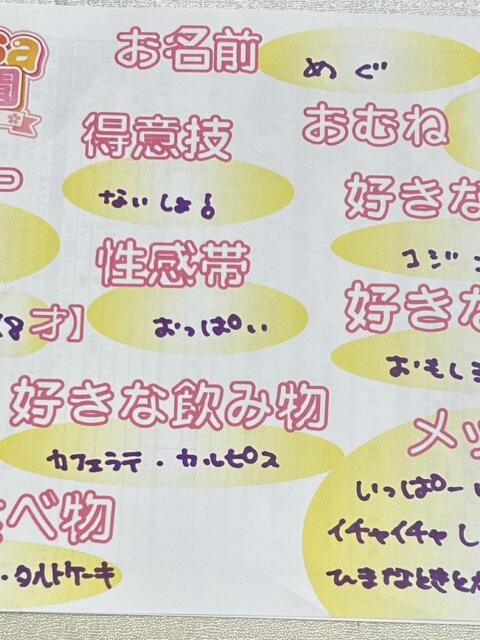 お名前 めぐ
得意技 おむね
ないしょ♂
好きな
性感帯 コジ
おっぱい 好きな
才】 おもしろ
好きな飲み物
カフェラテ・カルピス
メッ
いっぱーい
べ物 イチャイチャし
・タルトケーキ ひまなときとか